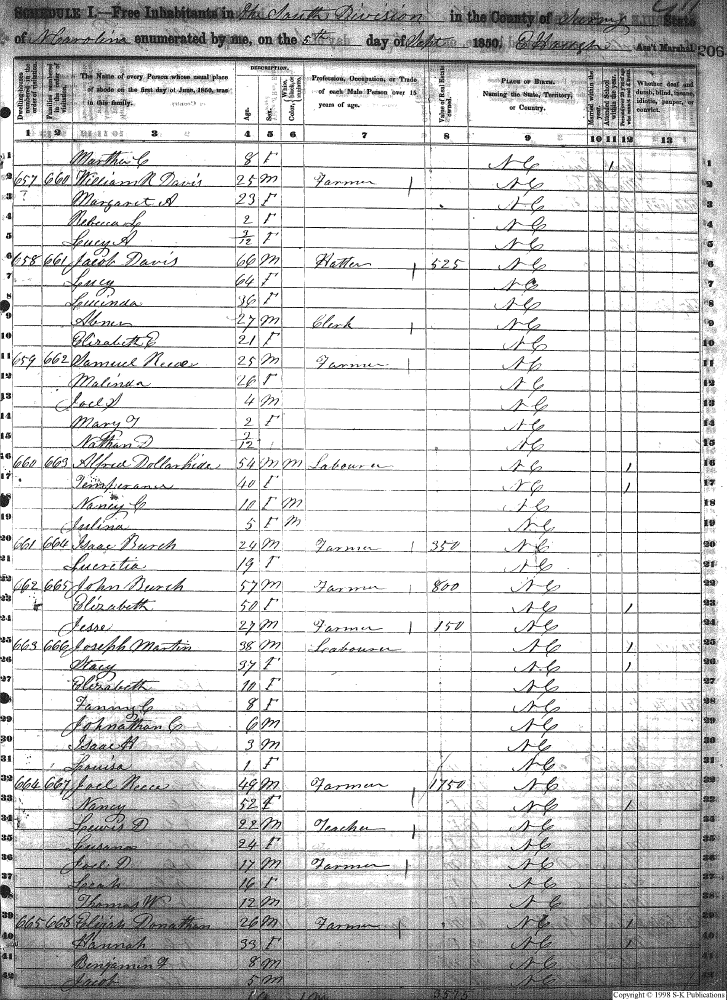 SCHEDULE I.—Free Inhabitants in the South Division in the County of Surry State
of N Carolina enumerated by me, on the 5th day of Sept 1850. Ass't Marshal. 206
Dwelling-houses numbered in the order of visitation.
Families numbered in the order of visitation.
The Name of every Person whose usual place of abode on the first day of June, 1850, was in this family.
DESCRIPTION.
Age.
Sex.
Color, White, black, or mulatto.
Profession, Occupation, or Trade of each Male Person over 15 years of age.
Value of Real Estate owned.
PLACE OF BIRTH. Naming the State, Territory, or Country.
Married within the year.
Attended School within the year.
Whether deaf and dumb, blind, insane, idiotic, pauper, or convict.
1 2 3 4 5 6 7 8 9 10 11 12 13
1 Martha C 8 F N C 1 1
2 657 660 William R Davis 25 M Farmer N C 2
3 Margaret A 23 F N C 3
4 Rebecca L 2 F N C 4
5 Lucy A /12 F N C 5
6 658 661 Jacob Davis 66 M Hatter 525 N C 6
7 Lucy 64 F N C 7
8 Lucinda 36 F N C 8
9 Abner 27 M Clerk N C 9
10 Elizabeth E 21 F N C 10
11 659 662 Samuel Reece 25 M Farmer N C 11
12 Malinda 26 F N C 12
13 Joel 4 M N C 13
14 Mary 2 F N C 14
15 Nathan D /12 N C 15
16 660 663 Alfred Dollarhide 54 M M Labourer N C 1 16
17 Temperance 40 F N C 1 17
18 Nancy C 10 F M N C 18
19 Julina 5 F M N C 19
20 661 664 Isaac Burch 24 M Farmer 350 N C 20
21 Lucretia 19 F N C 21
22 662 665 John Burch 57 M Farmer 800 N C 22
23 Elizabeth 50 F N C 1 23
24 Jesse 27 M Farmer 150 N C 24
25 663 666 Joseph Martin 38 M Labourer N C 1 25
26 Stacy 37 F N C 1 26
27 Elizabeth 10 F N C 27
28 Fanny C 8 F N C 28
29 Johnathan C 6 M N C 29
30 Isaac H 3 M N C 30
31 Louisa 1 F N C 31
32 664 667 Joel Reece 49 M Farmer 1750 N C 32
33 Nancy 52 F N C 1 33
34 Lewis D 22 M Teacher N C 34
35 Susana 24 F N C 35
36 Joel D 17 M Farmer N C 36
37 Leah 16 F N C 37
38 Thomas W 12 M N C 38
39 665 668 Elijah Donathan 26 M Farmer N C 1 39
40 Hannah 33 F N C 1 40
41 Benjamin F 8 M N C 41
42 Jacob 5 M N C 42
3575
Copyright © 1998 S-K Publications